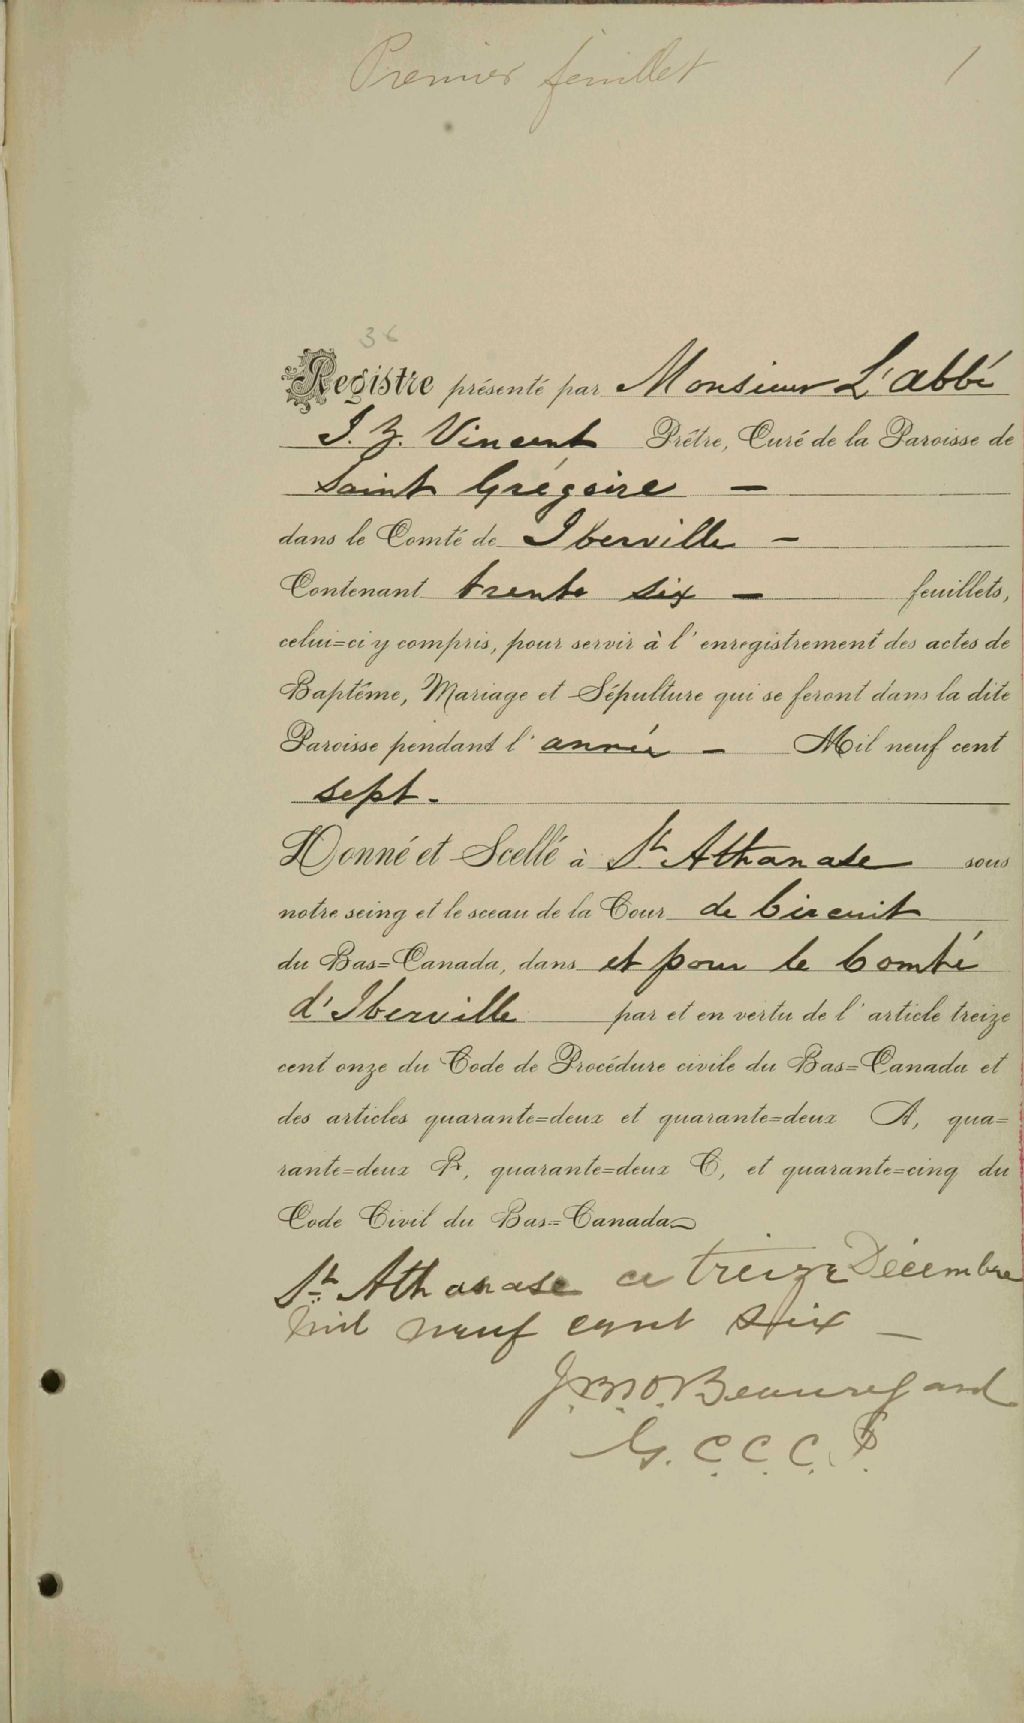 Premier feuillet 1
36
Registre présenté par Monsieur L'abbé
J. Z. Vincent Prêtre, Curé de la Paroisse de
Saint Grégoire —
dans le Comté de Iberville —
Contenant trente six — feuillets,
celui=ci y compris, pour servir à l'enregistrement des actes de
Baptême, Mariage et Sépulture qui se feront dans la dite
Paroisse pendant l'année — Mil neuf cent
sept -
Donné et Scellé à St Athanase sous
notre seing et le sceau de la Cour de Circuit
du Bas=Canada, dans et pour le Comté
d'Iberville par et en vertu de l'article treize
cent onze du Code de Procédure civile du Bas=Canada et
des articles quarante=deux et quarante=deux A, qua=
rante=deux B, quarante=deux C, et quarante=cinq du
Code Civil du Bas=Canada
St Athanase ce treize Décembre
mil neuf cent six —
Beauregard
G. C. C. C.